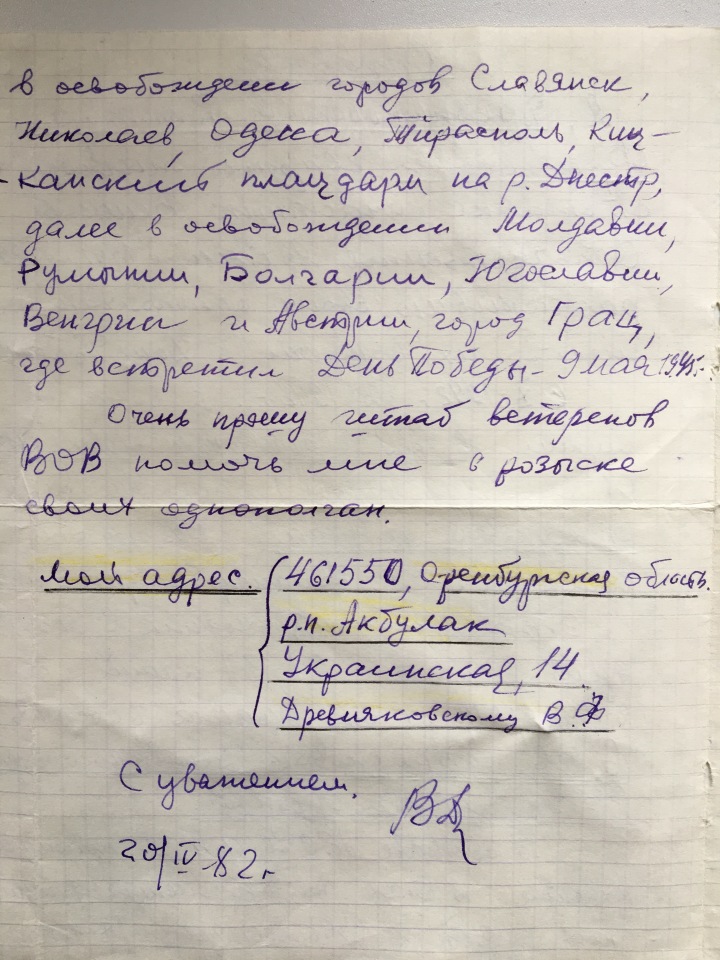 в освобождении городов Славянск,
Николаев, Одесса, Тирасполь, Киц-
-канский плацдарм на р. Днестр,
далее в освобождении Молдавии,
Румынии, Болгарии, Югославии,
Венгрии и Австрии, город Грац,
где встретил День Победы - 9 мая 1945г.
Очень прошу штаб ветеренов
ВОВ помочь мне в розыске
своих однополчан.
Мой адрес. 461550, Оренбургская область.
р.п. Акбулак
Украинская, 14
Древняковскому В.Ф
С уважением.
ВД
20/IV 82г.